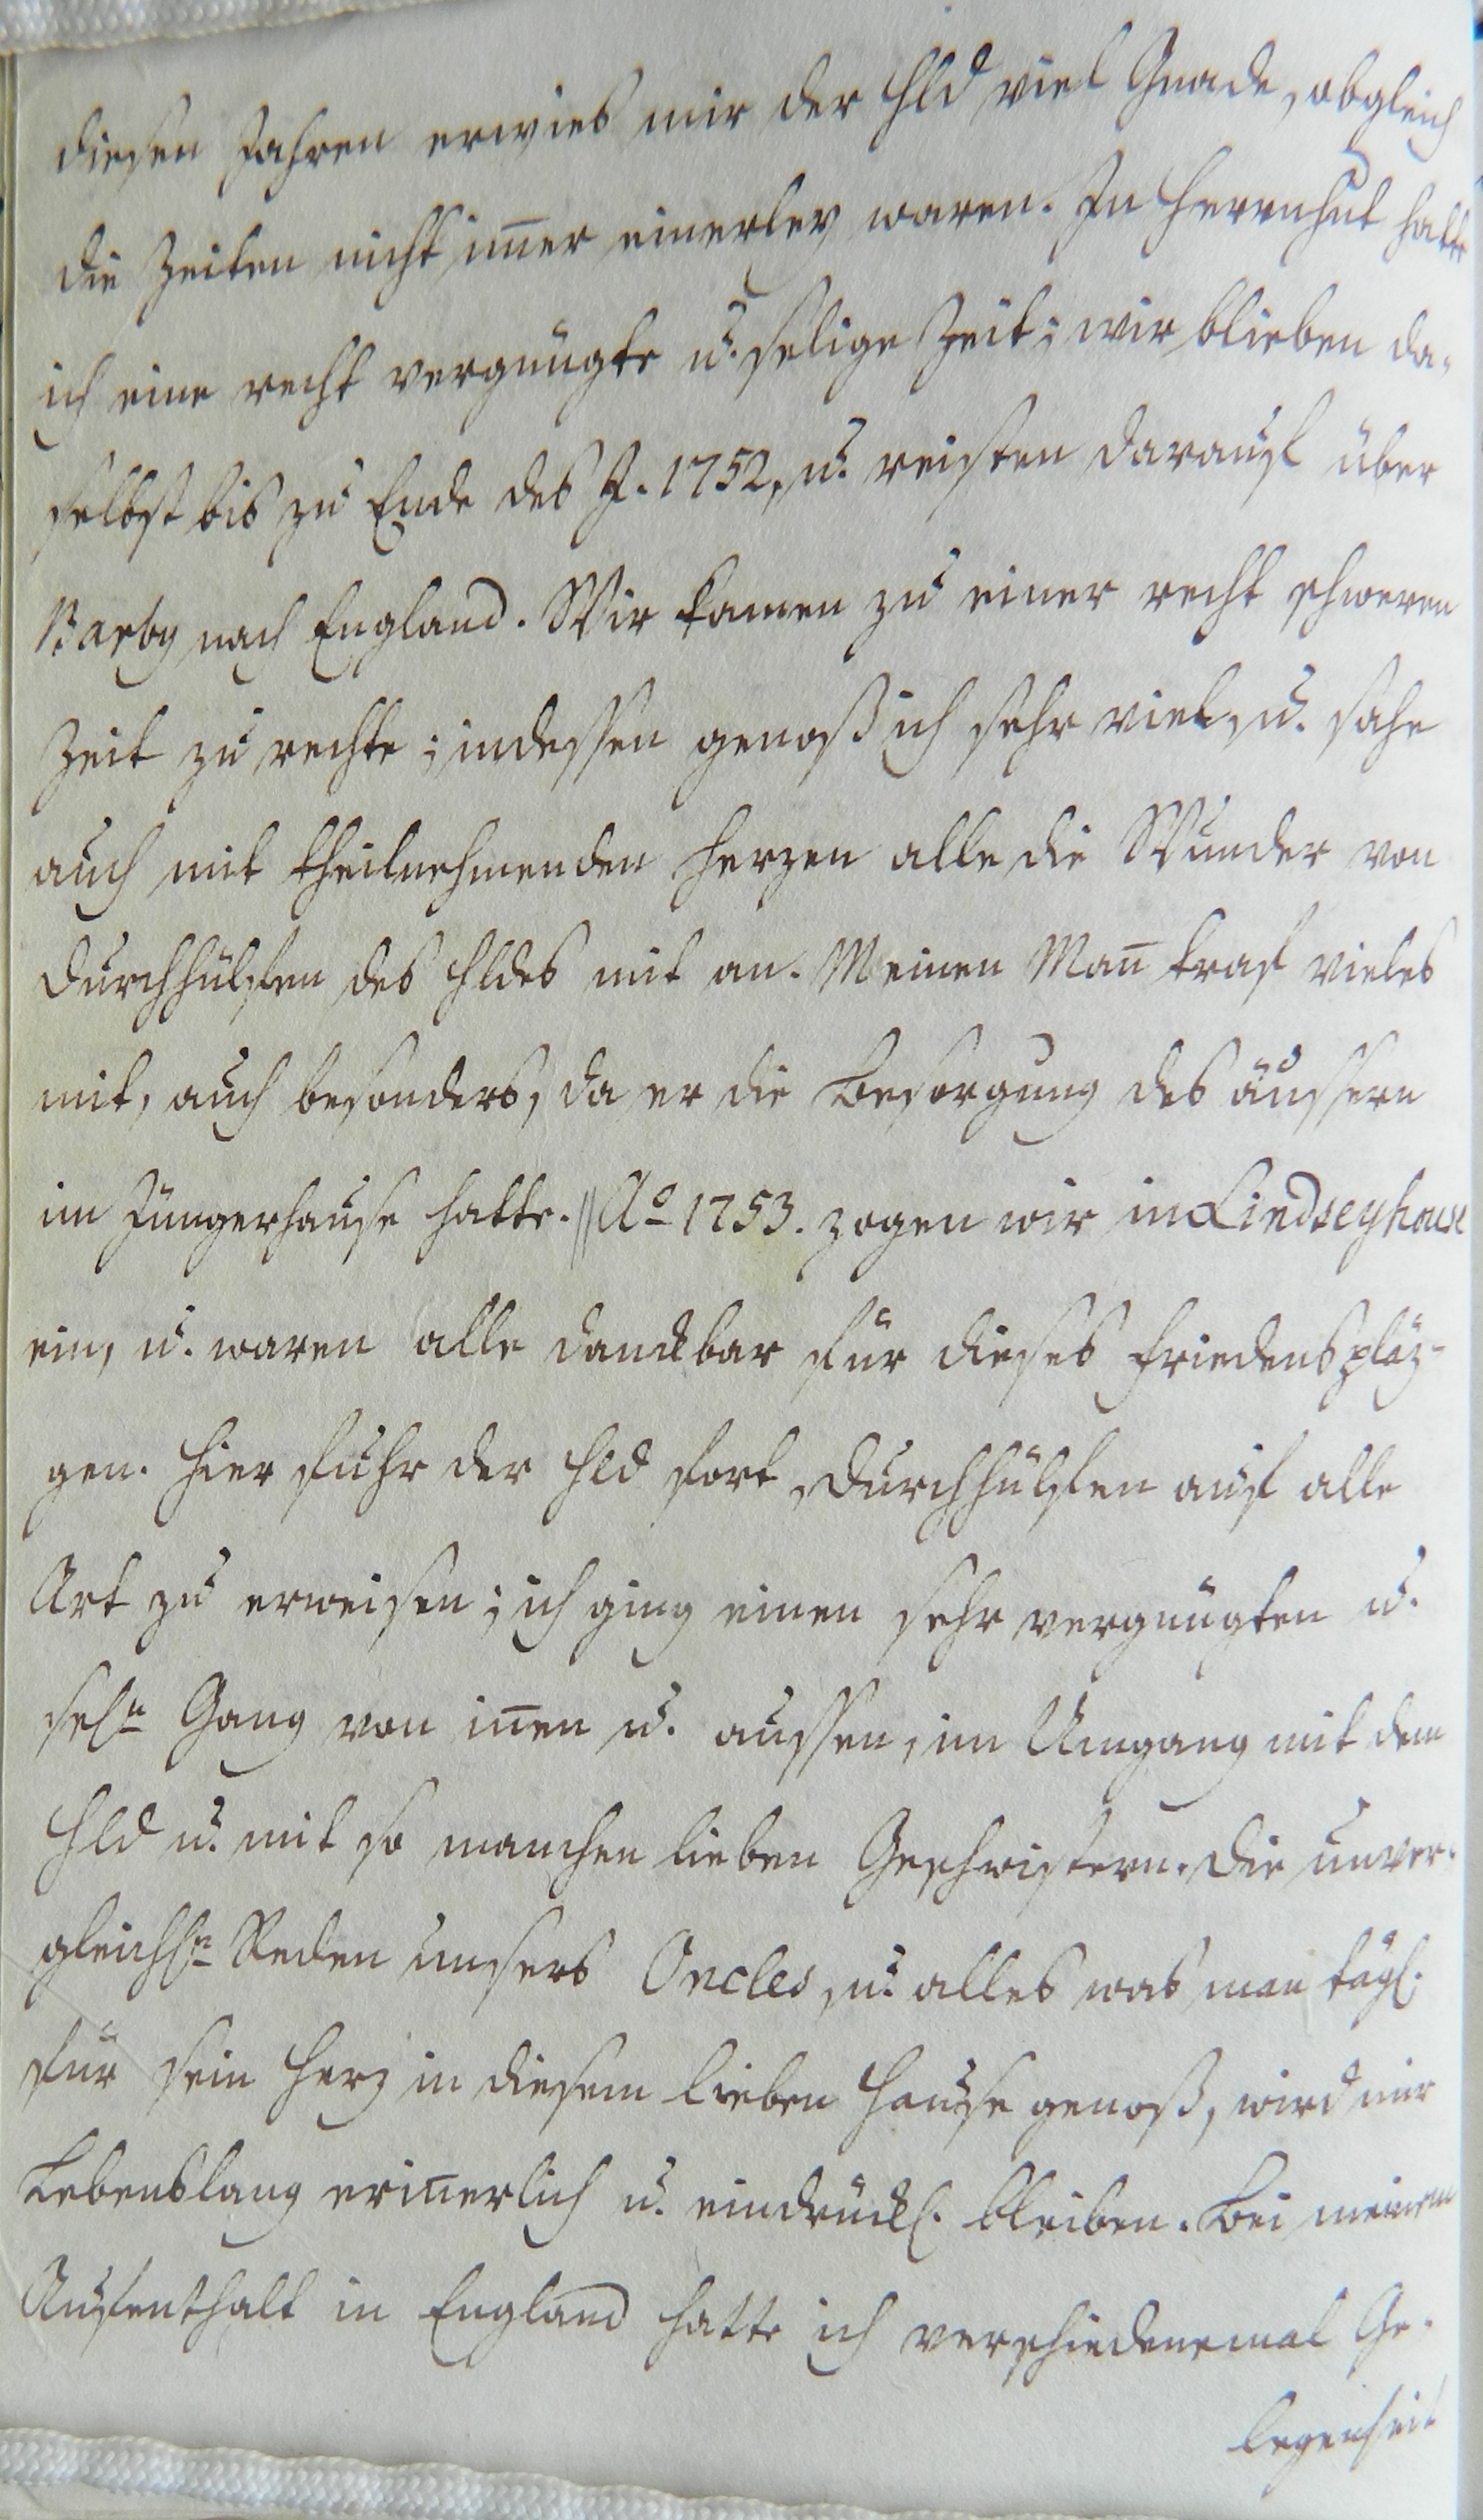 diesen Jahren erwies mir der Hld viel Gnade, obgleich
die Zeiten nicht im̅er einerley waren. In Herrnhut hatte
ich eine recht vergnügte u. selige Zeit; wir blieben da-
selbst bis zu Ende des J. 1752, u. reisten darauf über
Barby nach England. Wir kamen zu einer recht schweren
Zeit zu rechte; indessen genoß ich sehr viel, u. sahe
auch mit theilnehmenden Herzen alle die Wunder von
Durchhülfen des Hldes mit an. Meinen Man̅ traf vieles
mit, auch besonders, da er die Besorgung des äussern
im Jüngerhause hatte. // Ao 1753. zogen wir in Lindseyhouse
ein, u. waren alle danckbar für dieses Friedenspläz-
gen. Hier fuhr der Hld fort, Durchhülfen auf alle
Art zu erweisen; ich ging einen sehr vergnügten u.
seln Gang von in̅en u. aussen, im Umgang mit dem
Hld u. mit so manchen lieben Geschwistern. Die unver-
gleichln Reden unsers Oncles, u. alles was man tägl.
für sein Herz in diesem lieben Hause genoß, wird mir
Lebenslang erin̅erlich u. eindrückl. bleiben. Bei meinem
Aufenthalt in England hatte ich verschiedenemal Ge-
legenheit